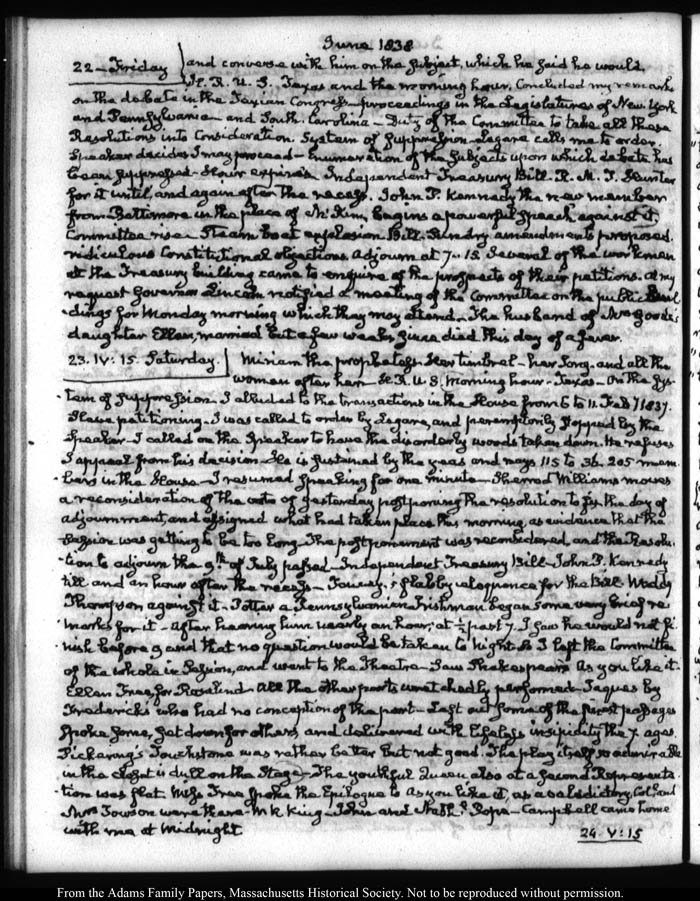 June 1838
22 – Friday } and converse with him on the subject, which he said he would.
H. R. U. S. Texas and the morning hour. Concluded my remarks
on the debate in the Texian Congress – proceedings in the Legislatures of New York
and Pennsylvania – and South Carolina – Duty of the Committee to take all these
Resolutions into Consideration. System of suppression – Legare calls me to order.
Speaker decides I may proceed – Enumeration of the subjects upon which debate has
been suppressed – Hour expires. Independent Treasury Bill. R. M. T. Hunter
for it until, and again after the recess. John P. Kennedy the new member
from Baltimore in the place of McKim, begins a powerful speech against it.
Committee rise – Steam boat explosion Bill. Sundry amendments proposed.
ridiculous Constitutional objections adjourn at 7.. 15. Several of the workmen
at the Treasury building came to enquire of the prospects of their petitions. At my
request Governor Lincoln notified a meeting of the Committee on the public Buil
-dings for Monday morning which they may attend – The husband of Mrs Goods
daughter Ellen, married but a few weeks since died this day of a fever.
23. IV: 15. Saturday. } Miriam the prophetess – Her timbrel – her song – and all the
women after her – H. R. U. S. Morning hour – Texas – On the Sys-
-tem of suppression – I alluded to the transactions in the House from 6 to 11. Feby 1837.
Slave petitioning – I was called to order by Legare, and peremptorily stopped by the
Speaker – I called on the Speaker to have the disorderly words taken down. He refuses
I appeal from his decision – He is sustained by the yeas and nays 115 to 36. 205 mem
-bers in the House – I resumed speaking for one minute – Sherrod Williams moves
a reconsideration of the vote of yesterday postponing the resolution to fix the day of
adjournment, and assigned what had taken place this morning, as evidence that the
session was getting to be too long – The postponement was reconsidered, and the Resolu-
-tion to adjourn the 9th of July passed – Independent Treasury Bill – John P. Kennedy
till and an hour after the recess – Toucey, flabby eloquence for the Bill Waddy
Thompson against it – Potter a Pennsylvanian Irishman began some very brief re
-marks for it – After hearing him nearly an hour; at ½ past 7. I saw he would not fi-
-nish before 9 and that no question would be taken to night. So I left the Committee
of the whole in Session, and went to the Theatre – Saw Shakespears As you like it.
Ellen Tree, for Rosalind – All the other parts wretchedly performed – Jaques by
Fredericks who had no conception of the part – Left out some of the finest passages
spoke some, set down for others, and delivered with lifeless insipidity the 7 ages.
Pickering's Touchstone was rather better but not good. The play itself so admirable
in the closet is dull on the Stage – The youthful Queen also at a second Representa
-tion was flat. Miss Tree spoke the Epilogue to As you like it, as a valedictory. Col. and
Mrs Towson were there – M R King – John and Nathl. Pope – Campbell came home
with me at Midnight
24. V: 15
From the Adams Family Papers, Massachusetts Historical Society. Not to be reproduced without permission.